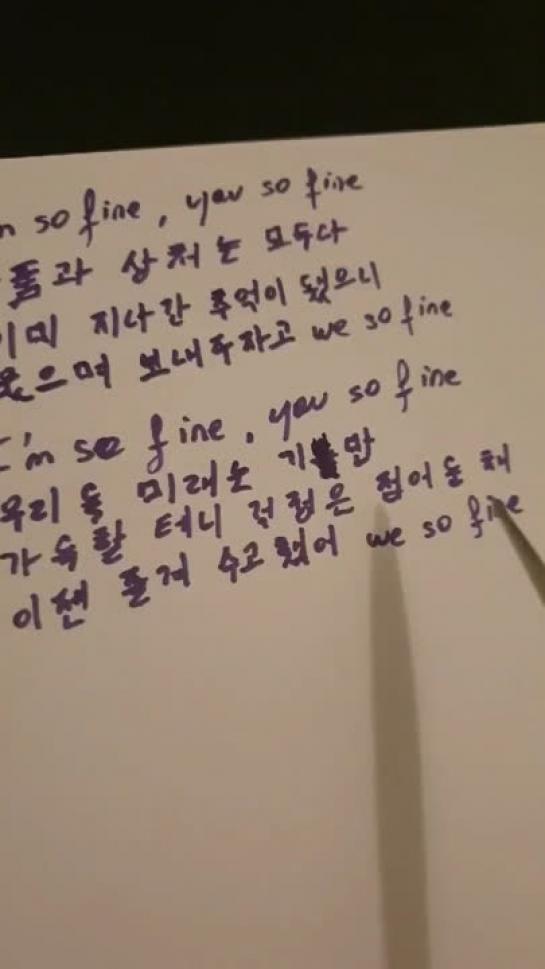 so fine, you so fine
과 상처는 모두다
지나간 추억이 됐으니
보내주자고 we so fine
I'm so fine, you so fine
우리 둘 미래는 기쁨만
가득할 터니 걱정은 접어둔 채
이젠 즐겨 수고했어 we so fine